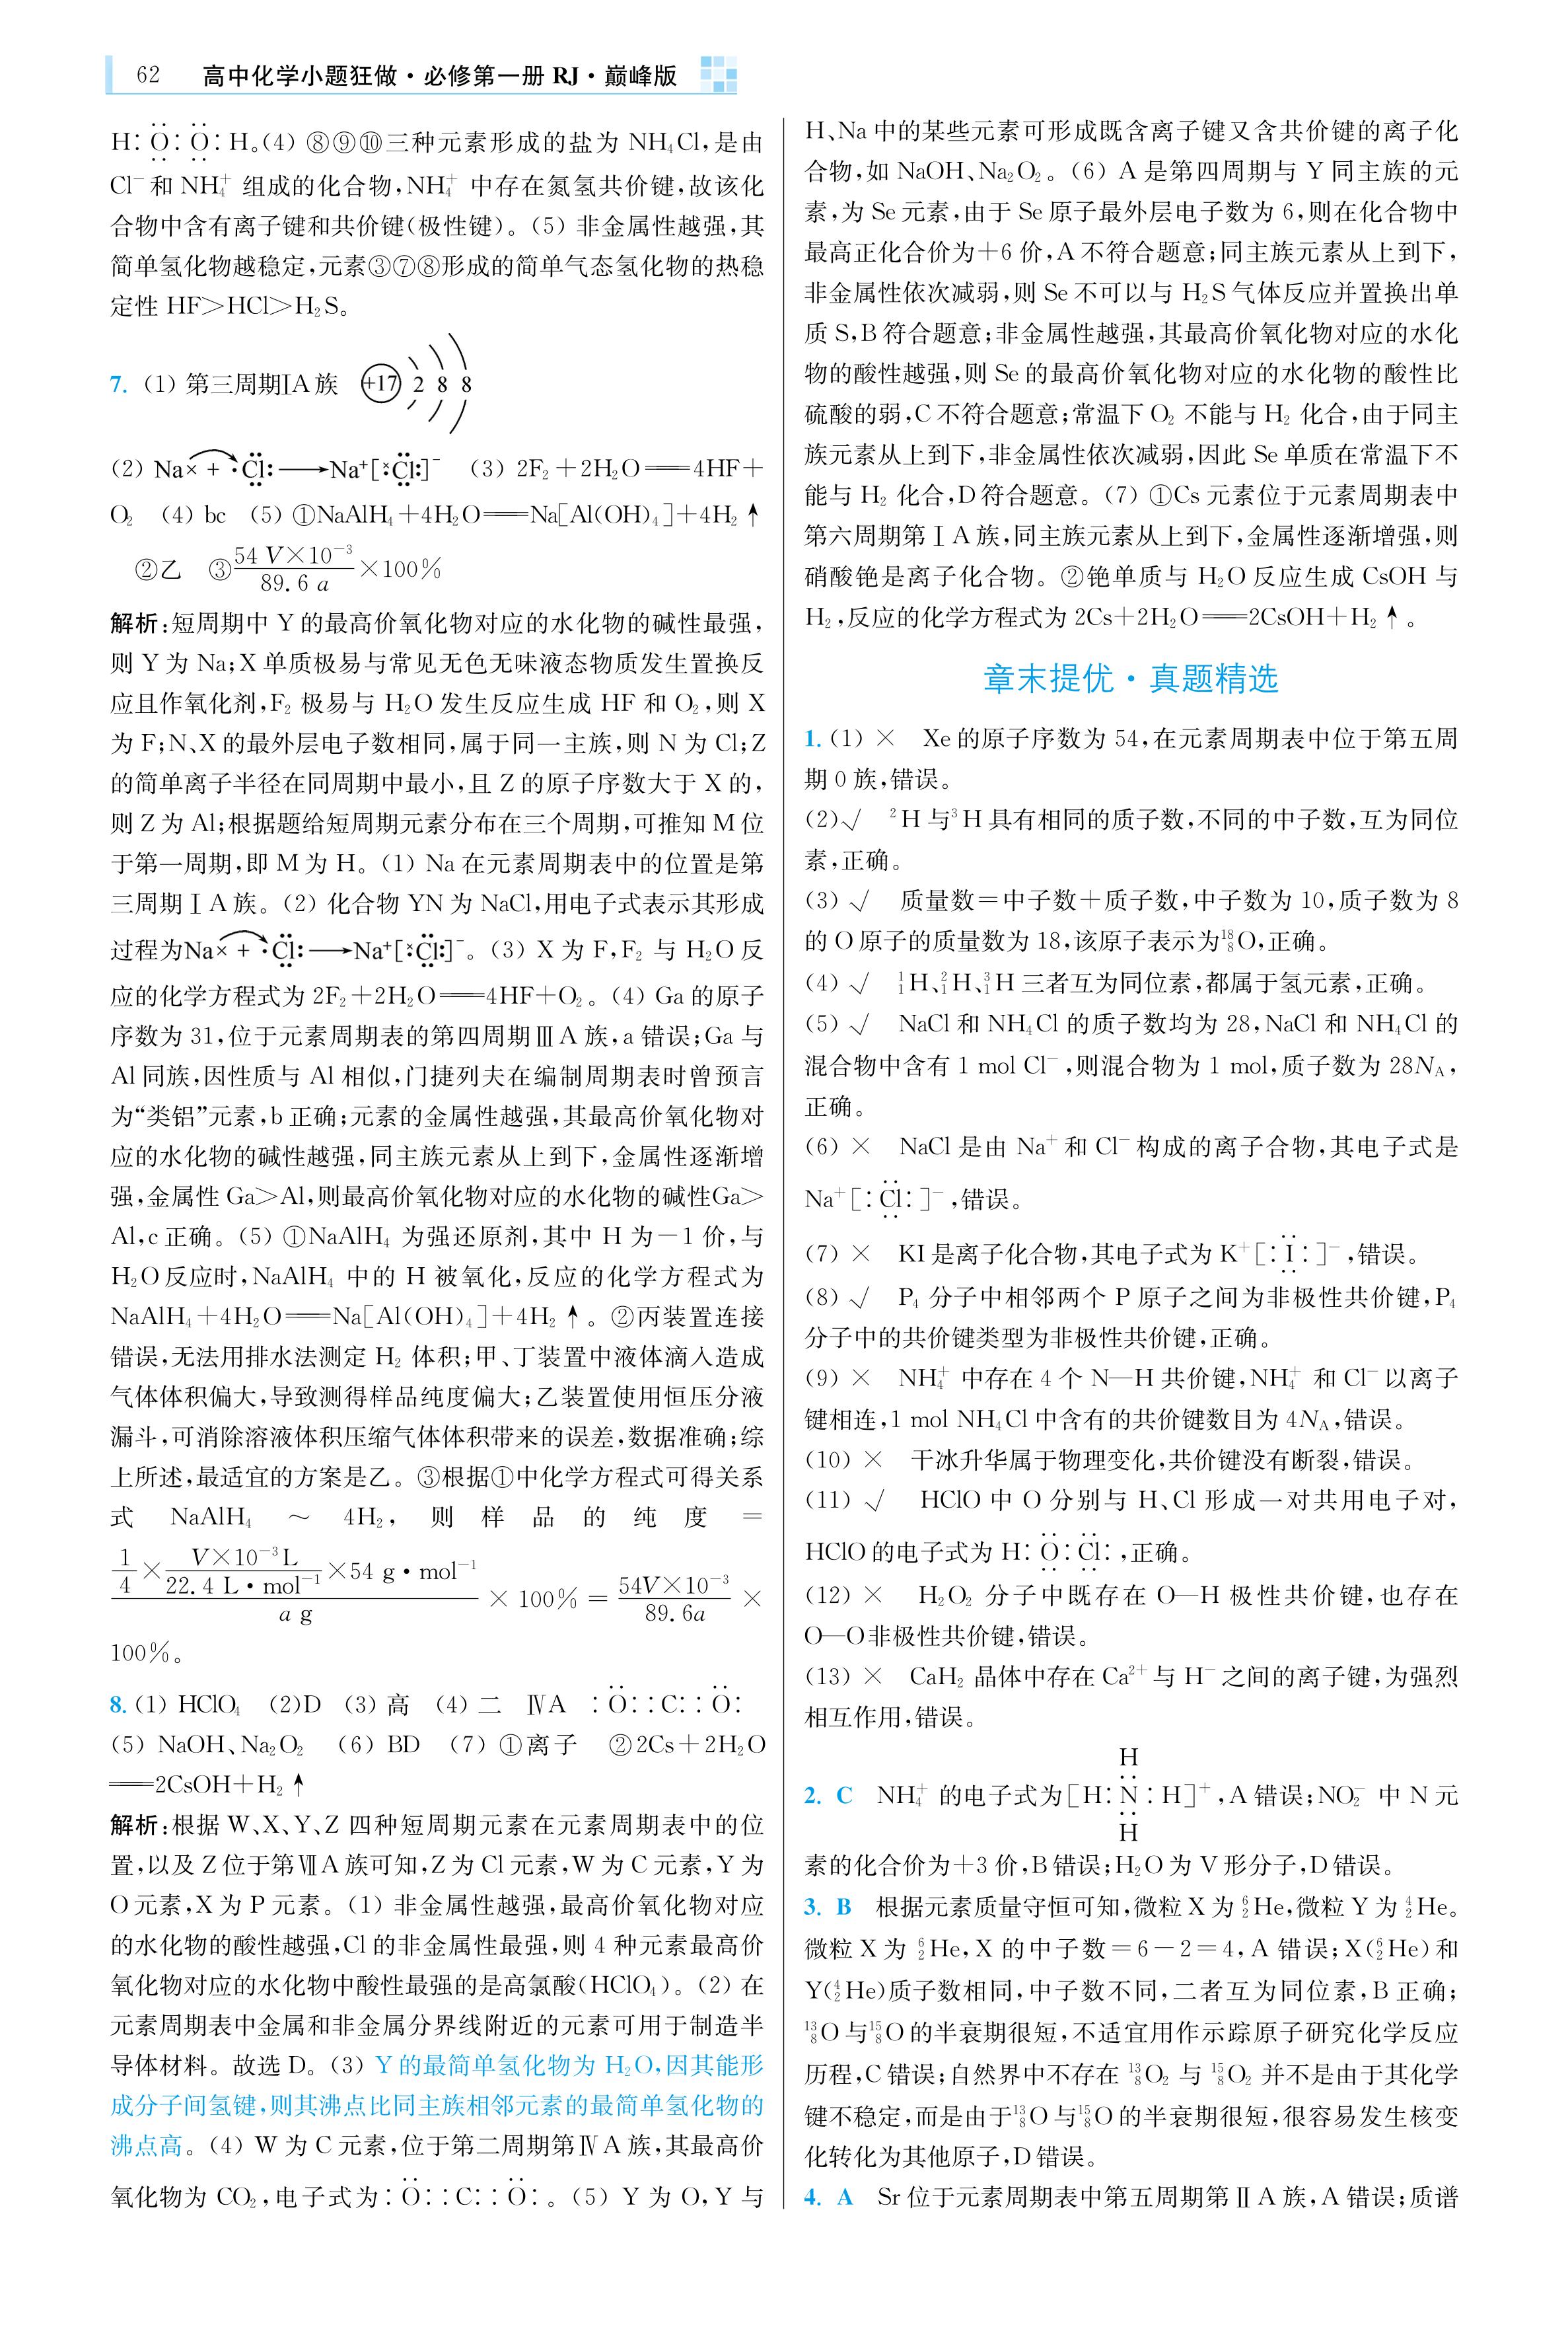 62 高中化学小题狂做·必修第一册 RJ·巅峰版
H:Ö:Ö:H。(4) ⑧⑨⑩三种元素形成的盐为 NH₄Cl,是由
Cl⁻ 和 NH₄⁺ 组成的化合物,NH₄⁺ 中存在氮氢共价键,故该化
合物中含有离子键和共价键(极性键)。(5) 非金属性越强,其
简单氢化物越稳定,元素③⑦⑧形成的简单气态氢化物的热稳
定性 HF>HCl>H₂S。
7. (1) 第三周期ⅠA 族 +17 2 8 8
(2) Na× + ·Cl:⟶Na⁺[×Cl:]⁻ (3) 2F₂+2H₂O══4HF+
O₂ (4) bc (5) ①NaAlH₄+4H₂O══Na[Al(OH)₄]+4H₂↑
②乙 ③54 V×10⁻³/89.6 a×100%
解析:短周期中 Y 的最高价氧化物对应的水化物的碱性最强,
则 Y 为 Na;X 单质极易与常见无色无味液态物质发生置换反
应且作氧化剂,F₂ 极易与 H₂O 发生反应生成 HF 和 O₂,则 X
为 F;N、X 的最外层电子数相同,属于同一主族,则 N 为 Cl;Z
的简单离子半径在同周期中最小,且 Z 的原子序数大于 X 的,
则 Z 为 Al;根据题给短周期元素分布在三个周期,可推知 M 位
于第一周期,即 M 为 H。(1) Na 在元素周期表中的位置是第
三周期ⅠA 族。(2) 化合物 YN 为 NaCl,用电子式表示其形成
过程为Na× + ·Cl:⟶Na⁺[×Cl:]⁻。(3) X 为 F,F₂ 与 H₂O 反
应的化学方程式为 2F₂+2H₂O══4HF+O₂。(4) Ga 的原子
序数为 31,位于元素周期表的第四周期ⅢA 族,a 错误;Ga 与
Al 同族,因性质与 Al 相似,门捷列夫在编制周期表时曾预言
为“类铝”元素,b 正确;元素的金属性越强,其最高价氧化物对
应的水化物的碱性越强,同主族元素从上到下,金属性逐渐增
强,金属性 Ga>Al,则最高价氧化物对应的水化物的碱性Ga>
Al,c 正确。(5) ①NaAlH₄ 为强还原剂,其中 H 为-1 价,与
H₂O 反应时,NaAlH₄ 中的 H 被氧化,反应的化学方程式为
NaAlH₄+4H₂O══Na[Al(OH)₄]+4H₂↑。②丙装置连接
错误,无法用排水法测定 H₂ 体积;甲、丁装置中液体滴入造成
气体体积偏大,导致测得样品纯度偏大;乙装置使用恒压分液
漏斗,可消除溶液体积压缩气体体积带来的误差,数据准确;综
上所述,最适宜的方案是乙。③根据①中化学方程式可得关系
式 NaAlH₄ ~ 4H₂, 则样品的纯度 =
(1/4×V×10⁻³L/22.4 L·mol⁻¹×54 g·mol⁻¹)/a g × 100% = 54V×10⁻³/89.6a ×
100%。
8. (1) HClO₄ (2)D (3) 高 (4) 二 ⅣA :Ö::C::Ö:
(5) NaOH、Na₂O₂ (6) BD (7) ①离子 ②2Cs+2H₂O
══2CsOH+H₂↑
解析:根据 W、X、Y、Z 四种短周期元素在元素周期表中的位
置,以及 Z 位于第ⅦA 族可知,Z 为 Cl 元素,W 为 C 元素,Y 为
O 元素,X 为 P 元素。(1) 非金属性越强,最高价氧化物对应
的水化物的酸性越强,Cl 的非金属性最强,则 4 种元素最高价
氧化物对应的水化物中酸性最强的是高氯酸(HClO₄)。(2) 在
元素周期表中金属和非金属分界线附近的元素可用于制造半
导体材料。故选 D。(3) Y 的最简单氢化物为 H₂O,因其能形
成分子间氢键,则其沸点比同主族相邻元素的最简单氢化物的
沸点高。(4) W 为 C 元素,位于第二周期第ⅣA 族,其最高价
氧化物为 CO₂,电子式为:Ö::C::Ö:。(5) Y 为 O,Y 与
H、Na 中的某些元素可形成既含离子键又含共价键的离子化
合物,如 NaOH、Na₂O₂。(6) A 是第四周期与 Y 同主族的元
素,为 Se 元素,由于 Se 原子最外层电子数为 6,则在化合物中
最高正化合价为+6 价,A 不符合题意;同主族元素从上到下,
非金属性依次减弱,则 Se 不可以与 H₂S 气体反应并置换出单
质 S,B 符合题意;非金属性越强,其最高价氧化物对应的水化
物的酸性越强,则 Se 的最高价氧化物对应的水化物的酸性比
硫酸的弱,C 不符合题意;常温下 O₂ 不能与 H₂ 化合,由于同主
族元素从上到下,非金属性依次减弱,因此 Se 单质在常温下不
能与 H₂ 化合,D 符合题意。(7) ①Cs 元素位于元素周期表中
第六周期第ⅠA 族,同主族元素从上到下,金属性逐渐增强,则
硝酸铯是离子化合物。②铯单质与 H₂O 反应生成 CsOH 与
H₂,反应的化学方程式为 2Cs+2H₂O══2CsOH+H₂↑。
章末提优·真题精选
1. (1) × Xe 的原子序数为 54,在元素周期表中位于第五周
期 0 族,错误。
(2)√ ²H 与³H 具有相同的质子数,不同的中子数,互为同位
素,正确。
(3) √ 质量数=中子数+质子数,中子数为 10,质子数为 8
的 O 原子的质量数为 18,该原子表示为¹⁸₈O,正确。
(4) √ ¹₁H、²₁H、³₁H 三者互为同位素,都属于氢元素,正确。
(5) √ NaCl 和 NH₄Cl 的质子数均为 28,NaCl 和 NH₄Cl 的
混合物中含有 1 mol Cl⁻,则混合物为 1 mol,质子数为 28Nᴀ,
正确。
(6) × NaCl 是由 Na⁺ 和 Cl⁻ 构成的离子合物,其电子式是
Na⁺[:Cl:]⁻,错误。
(7) × KI 是离子化合物,其电子式为 K⁺[:I:]⁻,错误。
(8) √ P₄ 分子中相邻两个 P 原子之间为非极性共价键,P₄
分子中的共价键类型为非极性共价键,正确。
(9) × NH₄⁺ 中存在 4 个 N—H 共价键,NH₄⁺ 和 Cl⁻ 以离子
键相连,1 mol NH₄Cl 中含有的共价键数目为 4Nᴀ,错误。
(10) × 干冰升华属于物理变化,共价键没有断裂,错误。
(11) √ HClO 中 O 分别与 H、Cl 形成一对共用电子对,
HClO 的电子式为 H:Ö:Cl:,正确。
(12) × H₂O₂ 分子中既存在 O—H 极性共价键,也存在
O—O非极性共价键,错误。
(13) × CaH₂ 晶体中存在 Ca²⁺ 与 H⁻ 之间的离子键,为强烈
相互作用,错误。
H
2. C NH₄⁺ 的电子式为[H:N:H]⁺,A 错误;NO₂⁻ 中 N 元
H
素的化合价为+3 价,B 错误;H₂O 为 V 形分子,D 错误。
3. B 根据元素质量守恒可知,微粒 X 为 ⁶₂He,微粒 Y 为 ⁴₂He。
微粒 X 为 ⁶₂He,X 的中子数=6-2=4,A 错误;X(⁶₂He)和
Y(⁴₂He)质子数相同,中子数不同,二者互为同位素,B 正确;
¹³₈O 与¹⁵₈O 的半衰期很短,不适宜用作示踪原子研究化学反应
历程,C 错误;自然界中不存在 ¹³₈O₂ 与 ¹⁵₈O₂ 并不是由于其化学
键不稳定,而是由于¹³₈O 与¹⁵₈O 的半衰期很短,很容易发生核变
化转化为其他原子,D 错误。
4. A Sr 位于元素周期表中第五周期第ⅡA 族,A 错误;质谱